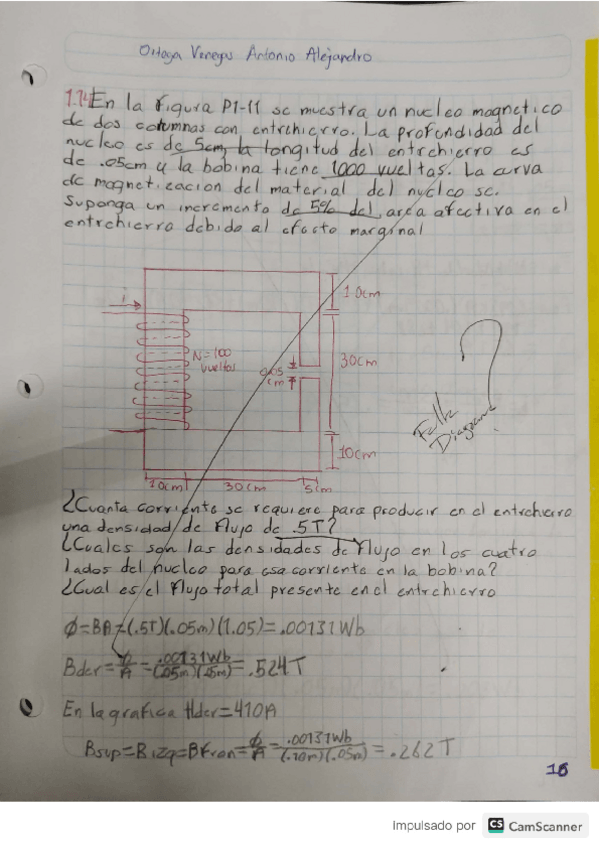 Ortega Venegas Antonio Alejandro
1.14 En la figura P1-11 se muestra un nucleo magnetico
de dos columnas con entrehierro. La profundidad del
nucleo es de 5cm, la longitud del entrehierro es
de .05cm y la bobina tiene 1000 vueltas. La curva
de magnetizacion del material del nucleo se.
Suponga un incremento de 5% del area afectiva en el
entrehierro debido al efecto marginal
i
10cm
N=100
vueltas
0.05
cm
30cm
10cm
10cm 30cm 5cm
Falta
Diagrama
?
¿Cuanta corriente se requiere para producir en el entrehierro
una densidad de flujo de .5T?
¿Cuales son las densidades de flujo en los cuatro
lados del nucleo para esa corriente en la bobina?
¿Cual es el flujo total presente en el entrehierro
Ø=BA=(.5T)(.05m)(1.05)=.00131Wb
Bder=Ø/A=.00131Wb/(.05m)(.05m)=.524T
En la grafica Hder=410A
Bsup=Bizq=BFron=Ø/A=.00131Wb/(.10m)(.05m)=.262T
16
Impulsado por CS CamScanner